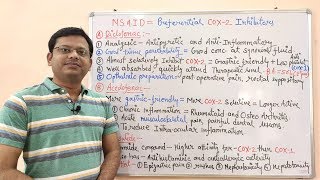 NSAID = Preferential COX-2 Inhibitors
Diclofenac:-
Analgesic - Antipyretic and Anti-Inflammatory
Good tissue penetrability = Good conc. at synovial fluid
Almost selectively Inhibit COX-2 = Gastric friendly + Less
Well absorbed quickly attend Therapeutic level
Ophthalmic preparation = post operative pain, rectal suppository
Aceclofenac:-
More gastric-friendly = More COX-2 Selective = Longer Active
Chronic Inflammation = Rheumatoid and Osteo Arthritis
Acute musculoskeletal pain, painful dental lesions
To reduce Intra-ocular inflammation
compound - Higher affinity for COX-2 than COX-1
has:- Antihistaminic and anticholinergic activity
Epigastric pain Nausea Hepatotoxicity